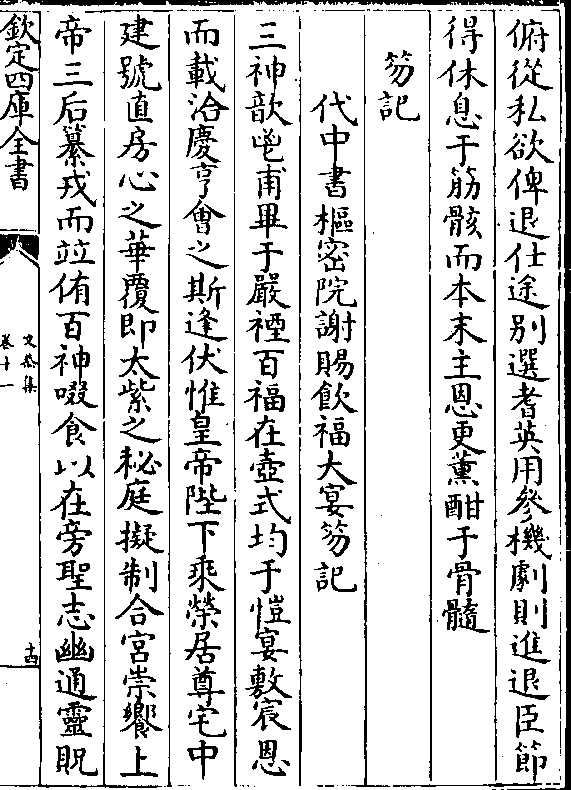 俯從私欲俾退仕途别選耆英用參機劇則進退臣節
得休息于筋骸而本末主恩更薰酣于骨髓
笏記
代中書樞密院謝賜飲福大宴笏記
三神歆鬯甫畢于嚴禋百福在壺式均于愷宴敷宸恩
而載洽慶亨會之斯逢伏惟皇帝陛下乘榮居尊宅中
建號直房心之華覆即太紫之秘庭擬制合宮崇饗上
帝三后纂戎而竝侑百神啜食以在旁聖志幽通靈貺
欽定四庫全書
文恭集
卷十一
十四